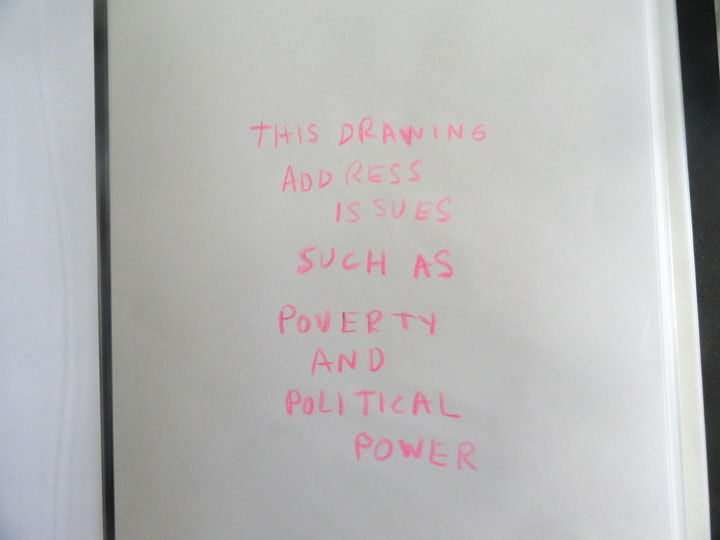 THIS DRAWING
ADDRESS
ISSUES
SUCH AS
POVERTY
AND
POLITICAL
POWER